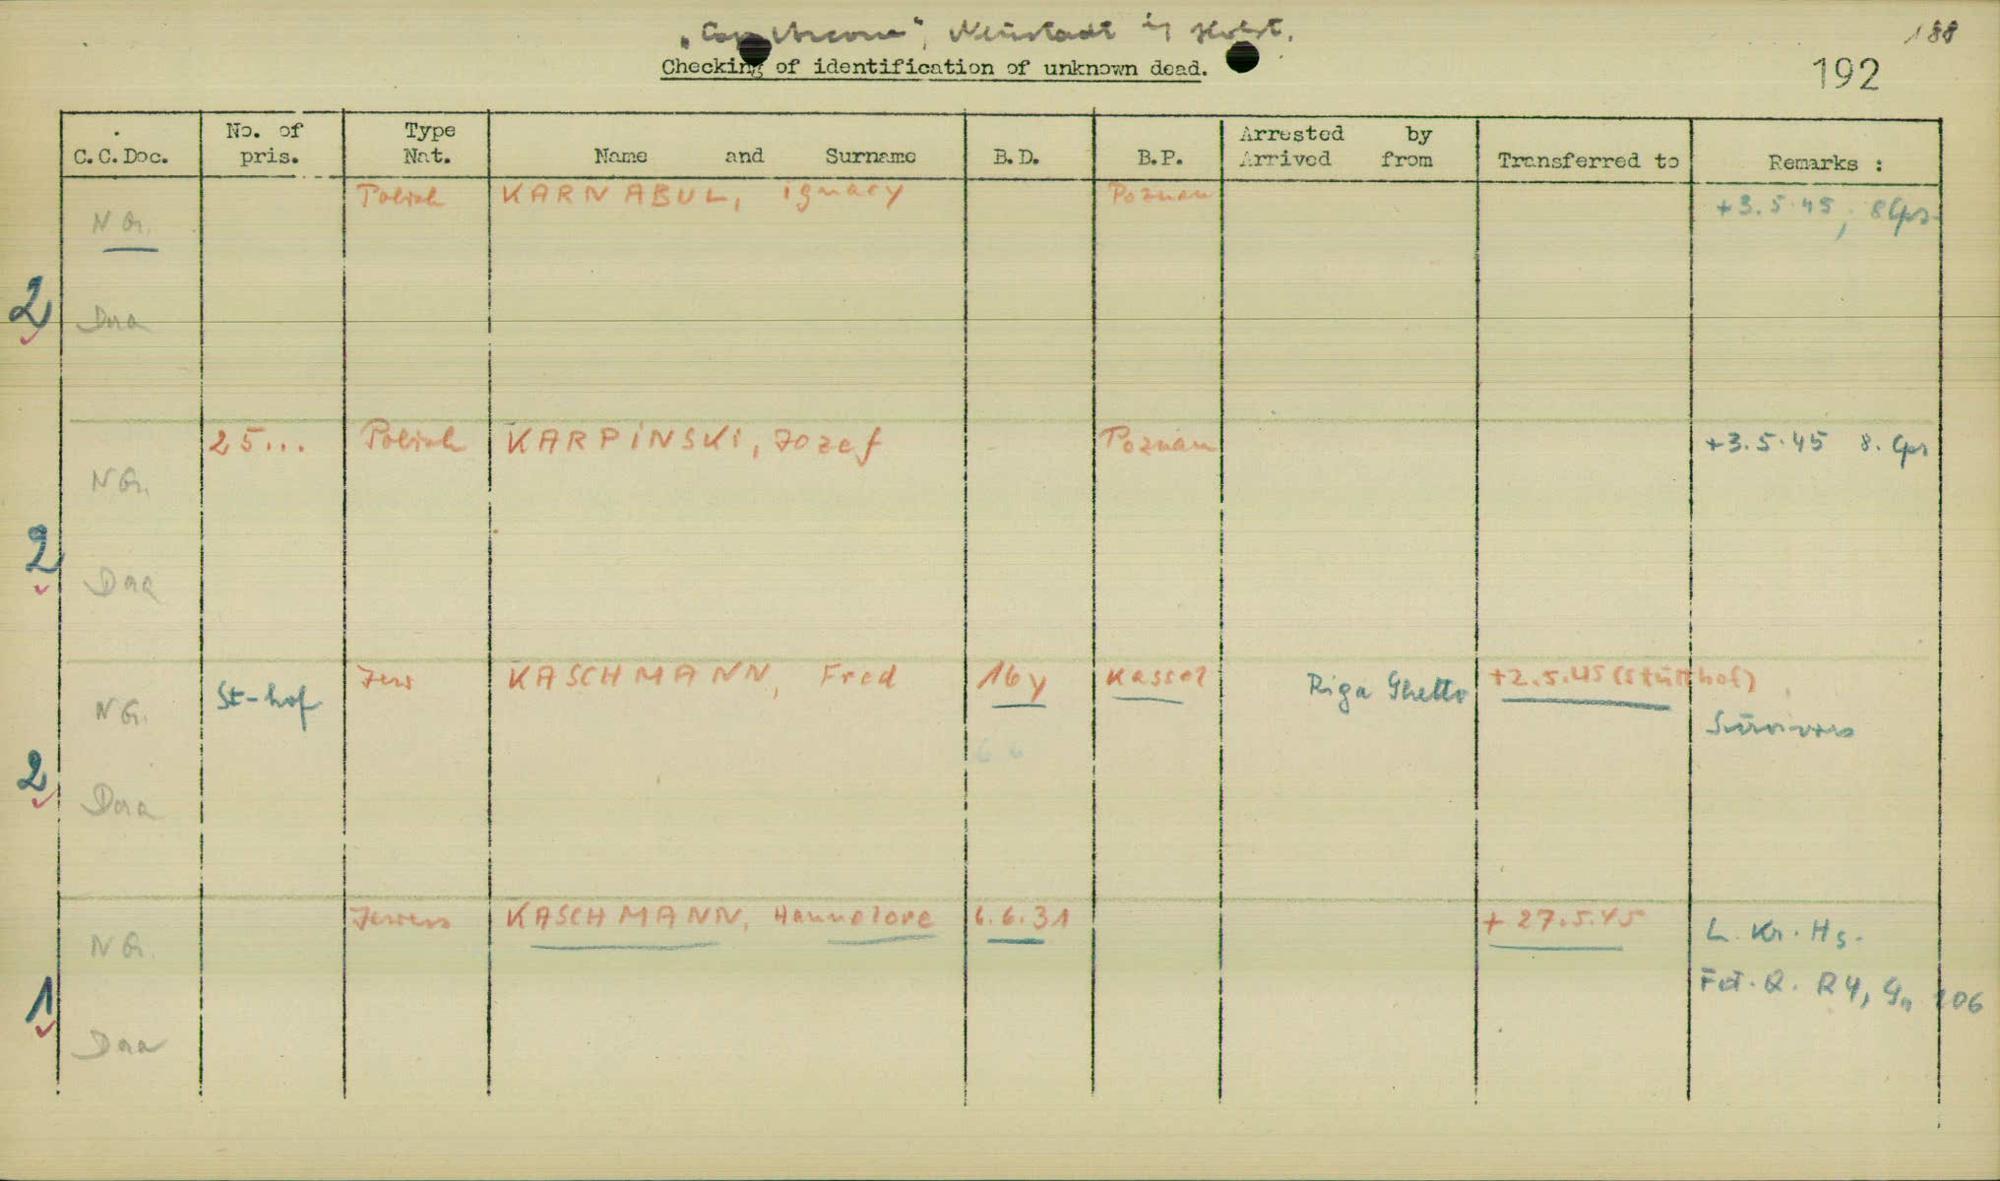 "Cap Arcona", Neustadt in Holst.
188
Checking of identification of unknown dead.
192
C.C.Doc.
No. of pris.
Type Nat.
Name and Surname
B.D.
B.P.
Arrested by
Arrived from
Transferred to
Remarks :
Polish KARNABUL, ignacy Poznan +3.5.45, 8 Cps.
N G.
2
Dora
25... Polish KARPiNSKi, Jozef Poznan +3.5.45 8. Cps
N G.
2
Dora
Jew KASCHMANN, Fred 16y Kassel +2.5.45 (Stütthof)
N G. St-hof Riga Ghetto
Survivors
2
Dora
Jewess KASCHMANN, Hannelore 6.6.31 + 27.5.45 L. Kr. Hs.
N G.
R4, 106
1
Dora